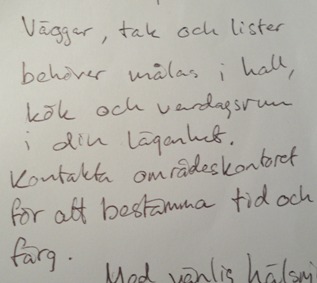 Väggar, tak och lister
behöver målas i hall,
kök och vardagsrum
i din lägenhet.
Kontakta områdeskontoret
för att bestämma tid och
färg.
Med vänlig